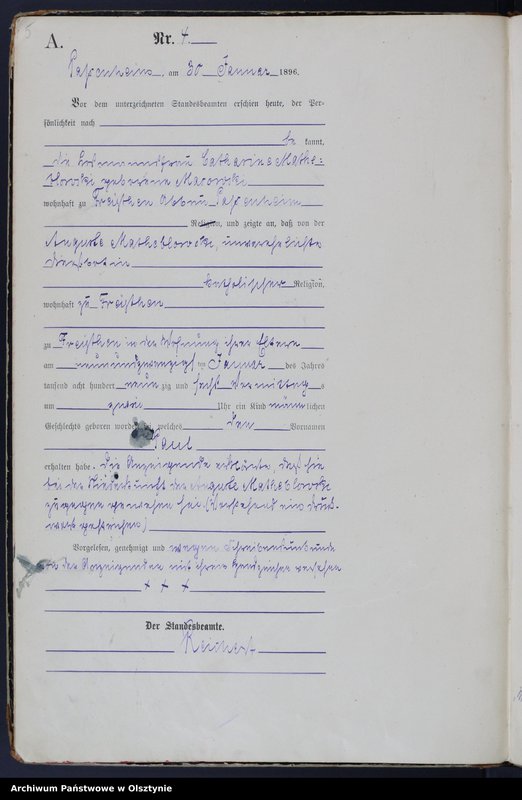 5
A.
Nr. 4.
Papenheim, am 30 Januar 1896.
Vor dem unterzeichneten Standesbeamten erschien heute, der Per-
sönlichkeit nach
be kannt,
die Losmannsfrau Catharine Mathe-
blowski geborene
wohnhaft zu Freithen Abbau Papenheim
Religion, und zeigte an, daß von der
Auguste Matheblowski, unverehelichte
katholischer Religion,
wohnhaft zu Freithen
zu Freithen in der Wohnung ihrer Eltern
am neunundzwanzigsten Januar des Jahres
tausend acht hundert neun zig und sechs Vormittag s
um zwei Uhr ein Kind männ lichen
Geschlechts geboren worden sei, welches den Vornamen
Paul
erhalten habe. Die Anzeigende erklärte, daß sie
bei der Niederkunft der Auguste Matheblowski
zugegen gewesen sei. (Vorstehend ein Druck-
wort gestrichen)
Vorgelesen, genehmigt und wegen Schreibensunkunde
von der Anzeigenden mit ihrem Handzeichen versehen
+ + +
Der Standesbeamte.
Reichert
Archiwum Państwowe w Olsztynie